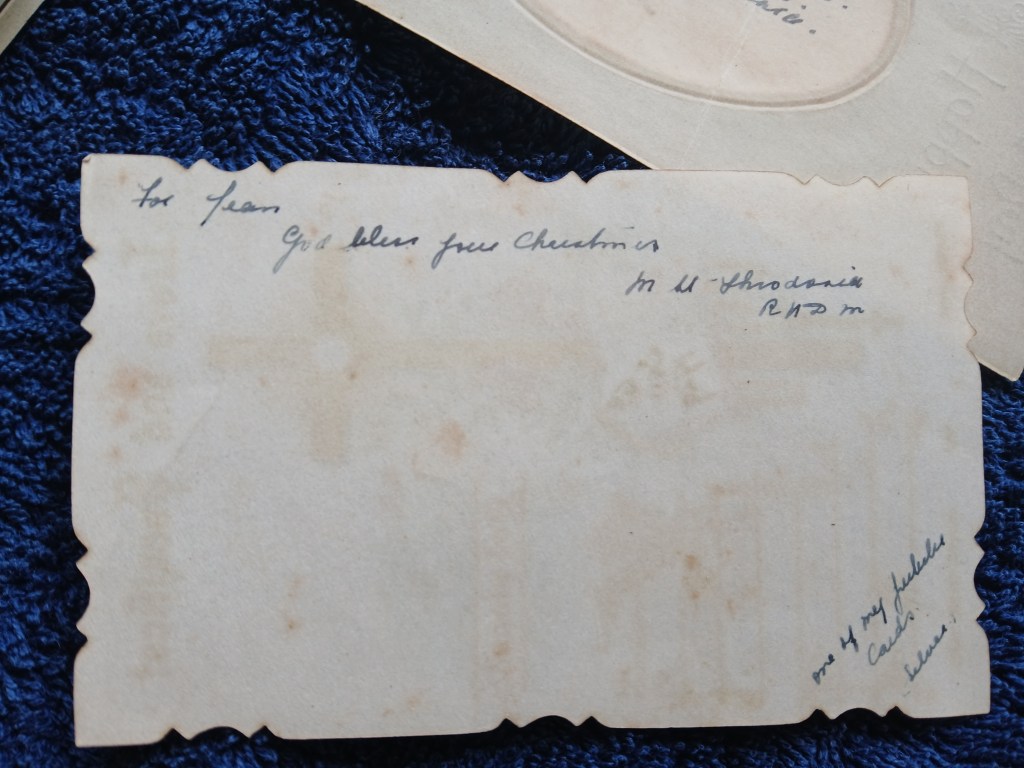 For Jean
God bless your Christmas
M M Theodosia
R N D M
one of my jubilee
Cards.
Silver.